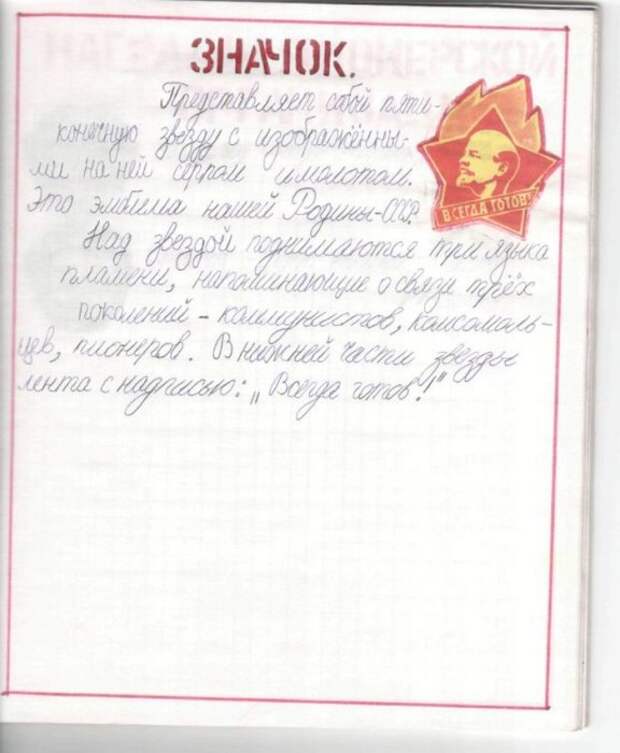 ЗНАЧОК.
Представляет собой пяти-
конечную звезду с изображённы-
ми на ней серпом и молотом.
Это эмблема нашей Родины-СССР.
Над звездой поднимаются три языка
пламени, напоминающие о связи трёх
поколений - коммунистов, комсомоль-
цев, пионеров. В нижней части звезды
лента с надписью: „Всегда готов!"
ВСЕГДА ГОТОВ!